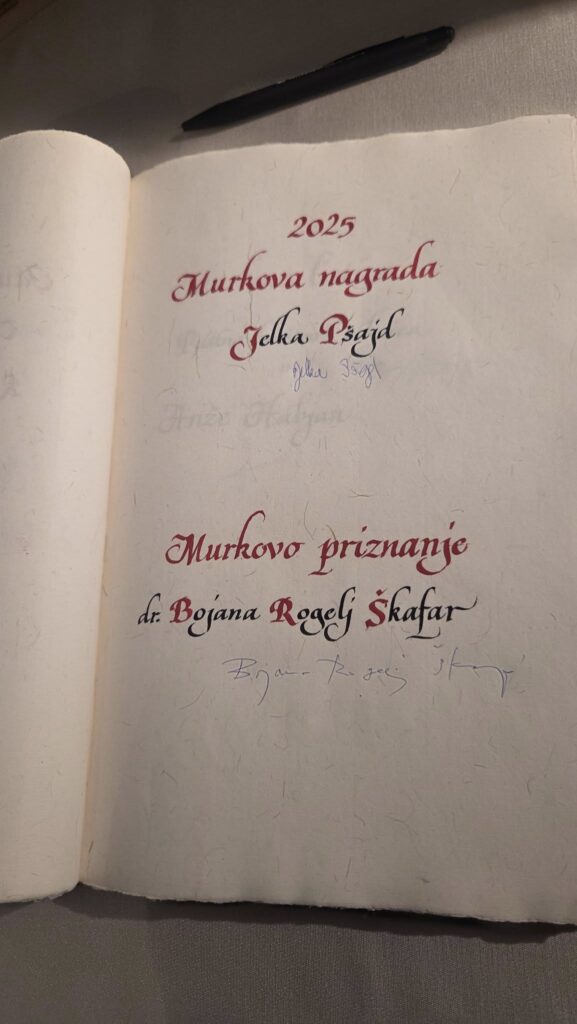 2025
Murkova nagrada
Jelka Pšajd
Jelka Pšajd
Anže Habjan
Murkovo priznanje
dr. Bojana Rogelj Škafar
Bojana Rogelj Škafar